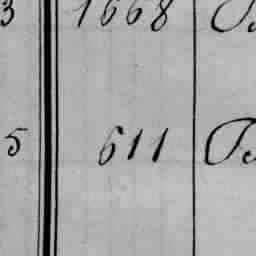 3 1668
5 611